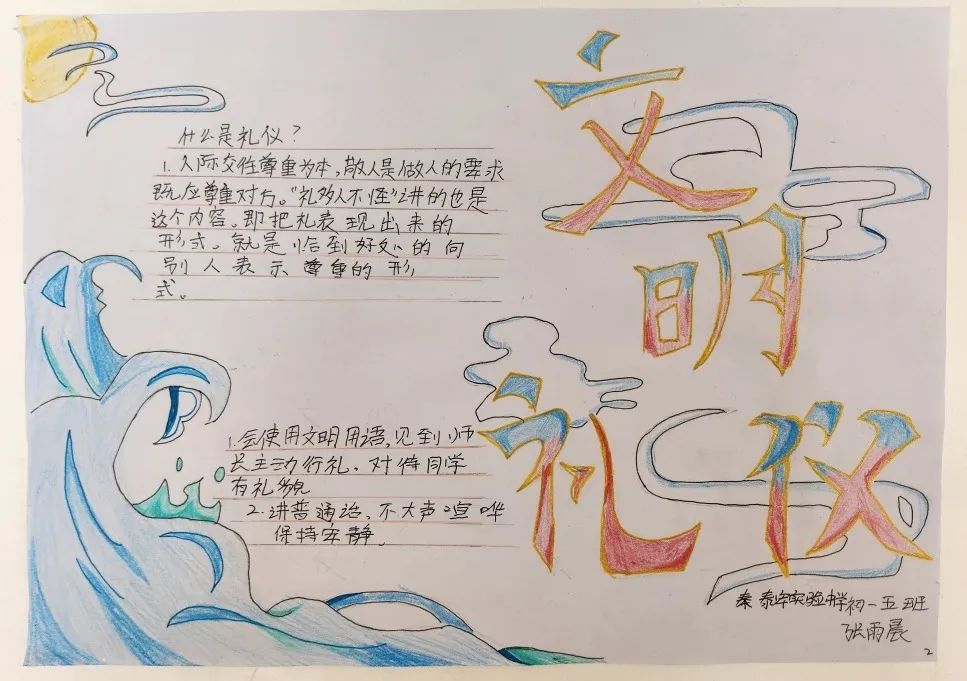 文明
礼仪
什么是礼仪？
1.人际交往尊重为本，敬人是做人的要求
既应尊重对方。“礼多人不怪”讲的也是
这个内容。即把礼表现出来的
形式。就是恰到好处的向
别人表示尊重的形
式。
1.会使用文明用语，见到师
长主动行礼，对待同学
有礼貌
2.讲普通话，不大声喧哗
保持安静。
实验中学初一五班
张雨晨
2